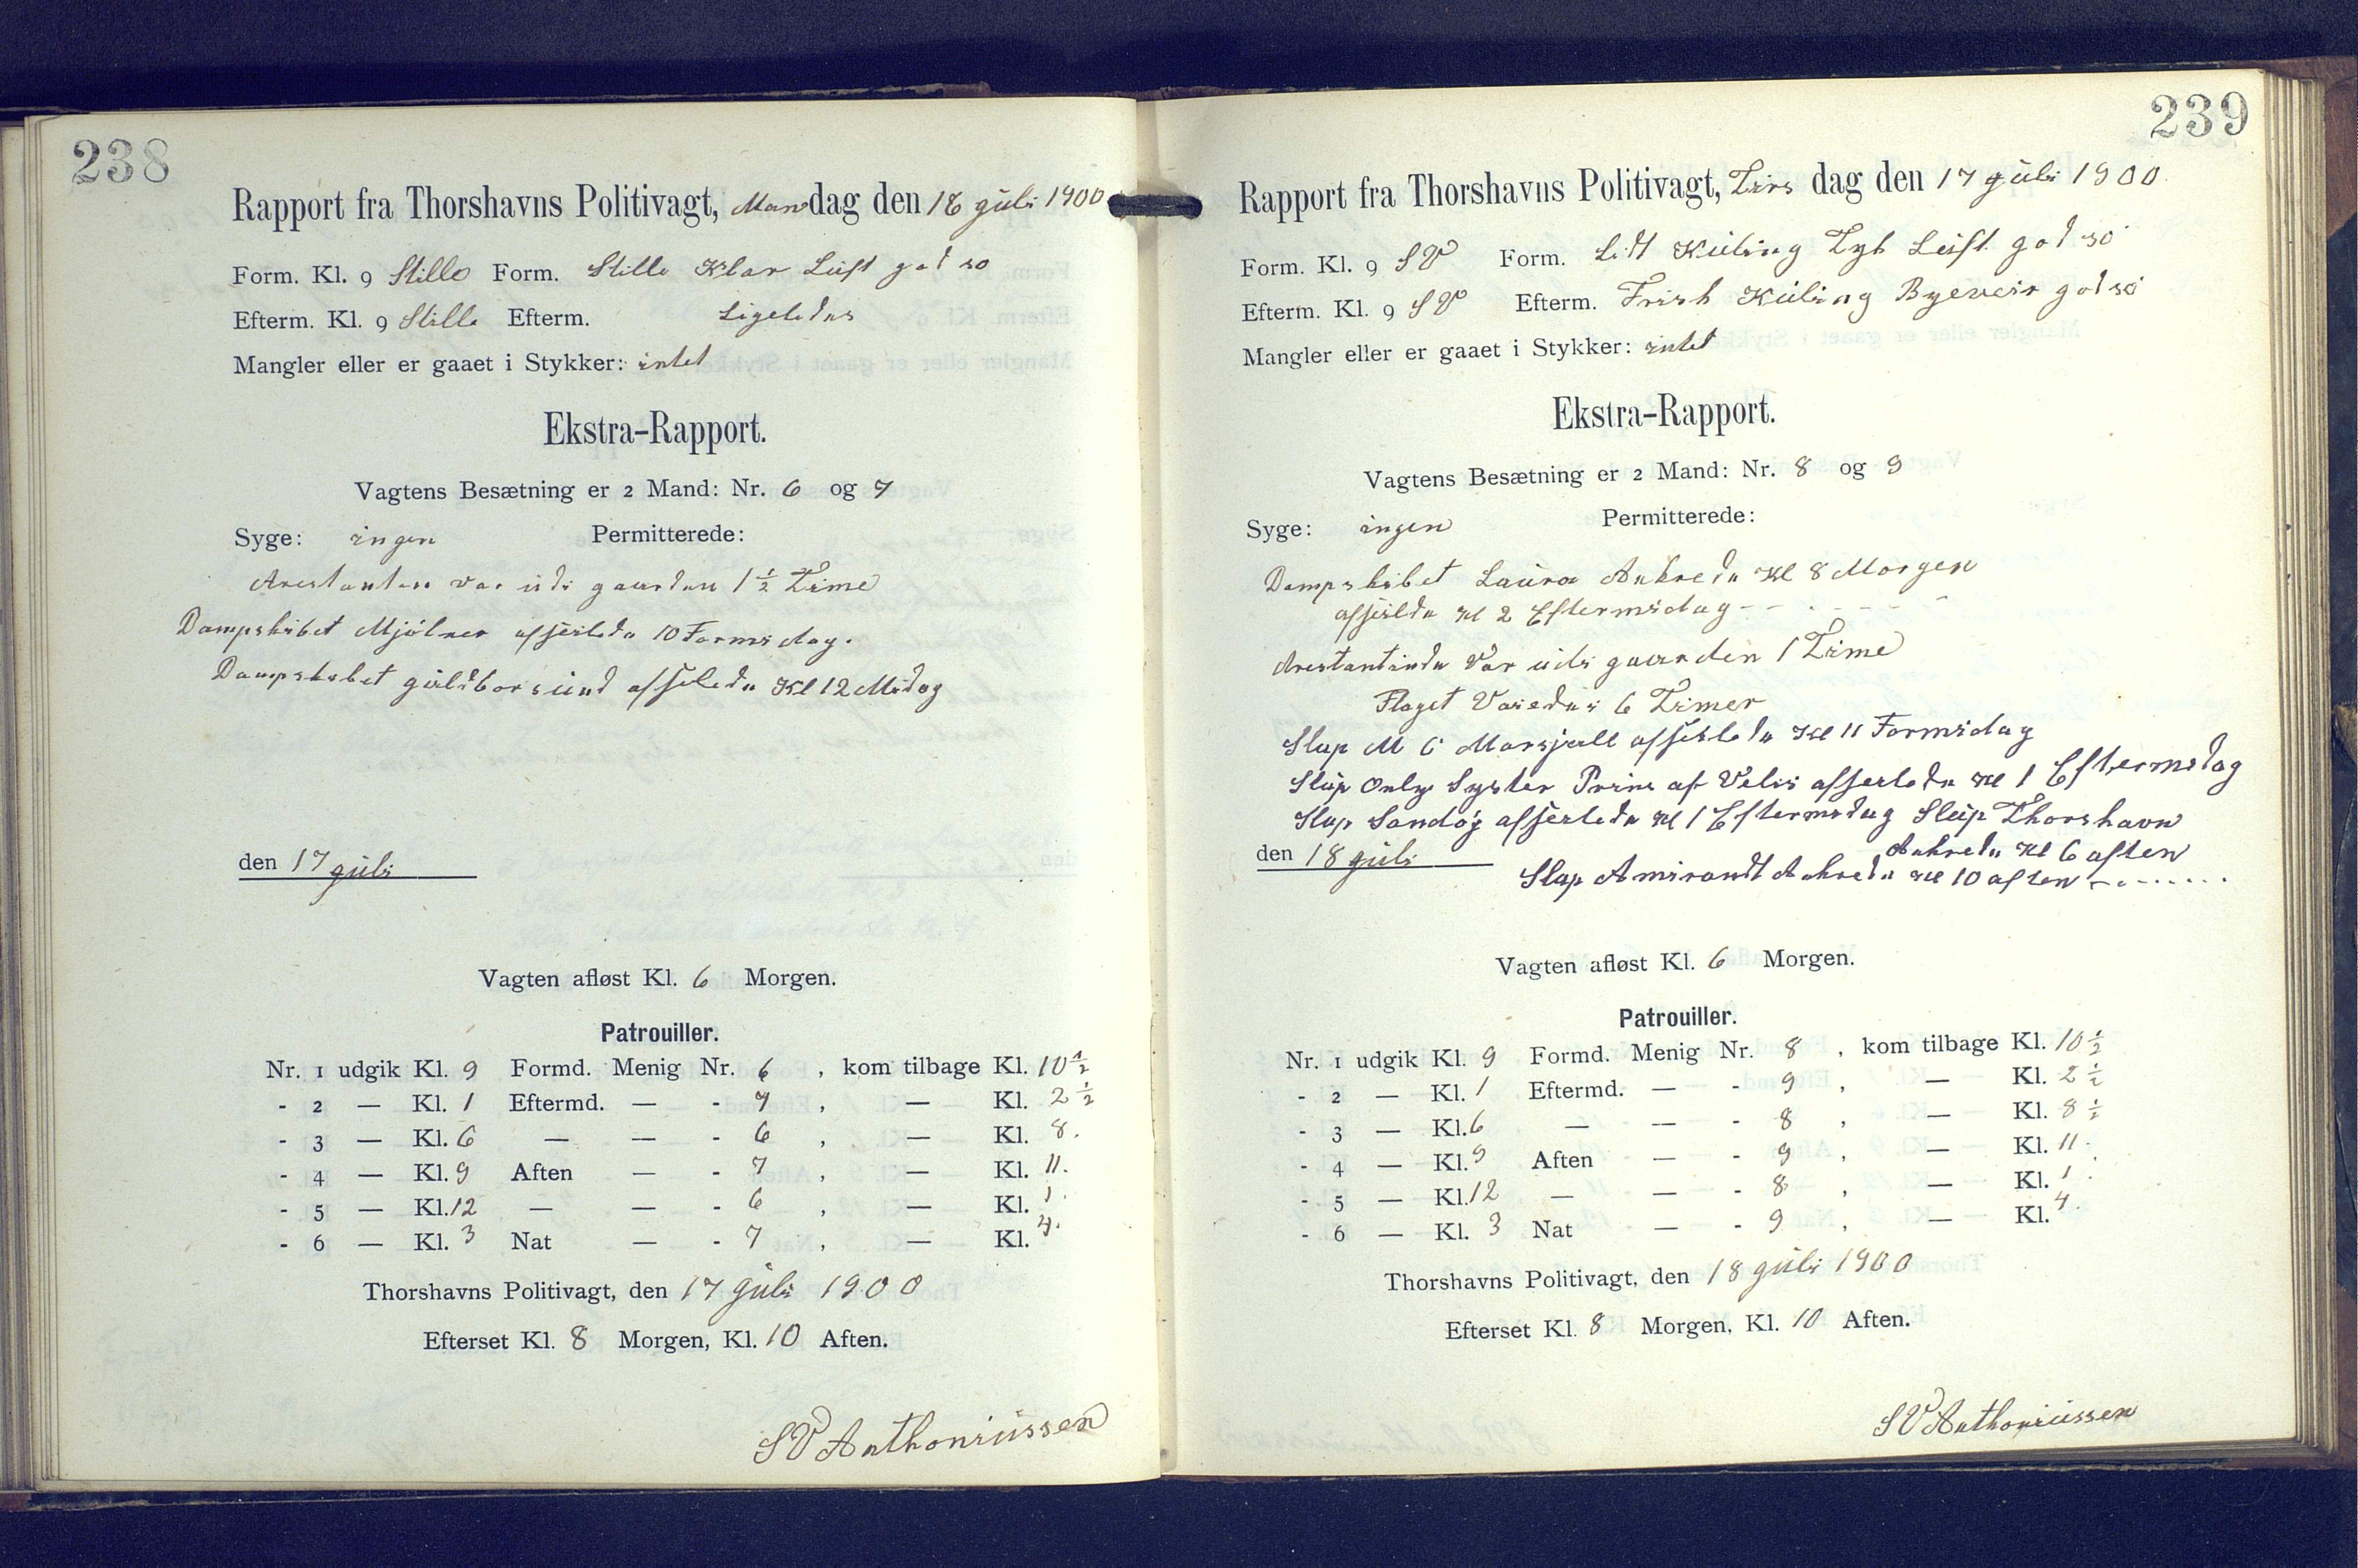 238
Rapport fra Thorshavns Politivagt, Mandag den 16 juli 1900
Form. Kl. 9 Stille Form. Stille Klar Luft god so
Efterm. Kl. 9 Stille Efterm. Ligeledes
Mangler eller er gaaet i Stykker: intet
Ekstra-Rapport.
Vagtens Besætning er 2 Mand: Nr. 6 og 7
Syge: ingen Permitterede:
Arestanten var udi gaarden 1 ½ Time
Dampskibet Mjölner afseilede 10 Formidag.
Dampskibet guldborsund afseilede Kl 12 Midag
den 17 juli
Vagten afløst Kl. 6 Morgen.
Patrouiller.
Nr. 1 udgik Kl. 9 Formd. Menig Nr. 6 , kom tilbage Kl. 10 ½
- 2 — Kl. 1 Eftermd. — - 7 , — Kl. 2 ½
- 3 — Kl. 6 — — - 6 , — Kl. 8.
- 4 — Kl. 9 Aften — - 7 , — Kl. 11.
- 5 — Kl. 12 — — - 6 , — Kl. 1.
- 6 — Kl. 3 Nat — - 7 , — Kl. 4.
Thorshavns Politivagt, den 17 juli 1900
Efterset Kl. 8 Morgen, Kl. 10 Aften.
SV Anthoniussen
239
Rapport fra Thorshavns Politivagt, Tirs dag den 17 juli 1900.
Form. Kl. 9 SV Form. Lidt Kuling Tyk Luft god so
Efterm. Kl. 9 SV Efterm. Frisk Kuling Byeveir god so
Mangler eller er gaaet i Stykker: intet
Ekstra-Rapport.
Vagtens Besætning er 2 Mand: Nr. 8 og 9
Syge: ingen Permitterede:
Dampskibet Laura Ankrede Kl 8 Morgen
afseilde Kl 2 Eftermidag
Arestantinde Var udi gaarden 1 Time
Flaget Vaiedes 6 Timer
Slup M C afseilede Kl 11 Formidag
Slup Only Syster Prins af Velis afseilede Kl 1 Eftermidag
Slup Sandöj afseilede Kl 1 Eftermidag Slup Thorshavn
Ankrede Kl 6 aften
den 18 juli
Slup Ankrede Kl 10 aften
Vagten afløst Kl. 6 Morgen.
Patrouiller.
Nr. 1 udgik Kl. 9 Formd. Menig Nr. 8 , kom tilbage Kl. 10 ½
- 2 — Kl. 1 Eftermd. — - 9 , — Kl. 2 ½
- 3 — Kl. 6 — — - 8 , — Kl. 8 ½
- 4 — Kl. 9 Aften — - 9 , — Kl. 11.
- 5 — Kl. 12 — — - 8 , — Kl. 1.
- 6 — Kl. 3 Nat — - 9 , — Kl. 4.
Thorshavns Politivagt, den 18 juli 1900
Efterset Kl. 8 Morgen, Kl. 10 Aften.
SV Anthoniussen